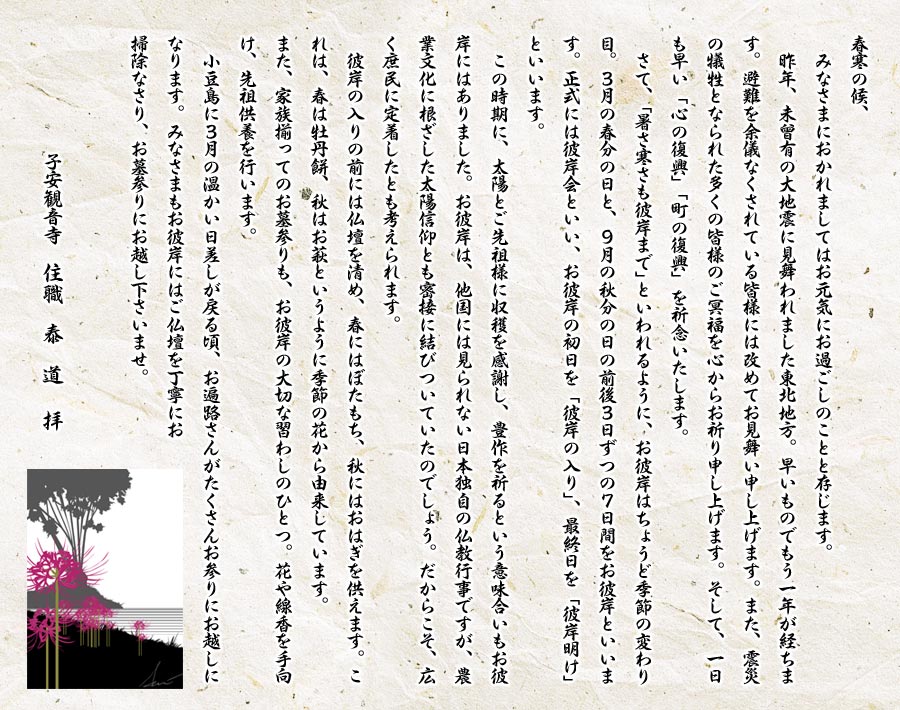 春寒の候、
みなさまにおかれましてはお元気にお過ごしのことと存じます。
昨年、未曾有の大地震に見舞われました東北地方。早いものでもう一年が経ちま
す。避難を余儀なくされている皆様には改めてお見舞い申し上げます。また、震災
の犠牲となられた多くの皆様のご冥福を心からお祈り申し上げます。そして、一日
も早い「心の復興」「町の復興」を祈念いたします。
さて、「暑さ寒さも彼岸まで」といわれるように、お彼岸はちょうど季節の変わり
目。３月の春分の日と、９月の秋分の日の前後３日ずつの７日間をお彼岸といいま
す。正式には彼岸会といい、お彼岸の初日を「彼岸の入り」、最終日を「彼岸明け」
といいます。
この時期に、太陽とご先祖様に収穫を感謝し、豊作を祈るという意味合いもお彼
岸にはありました。お彼岸は、他国には見られない日本独自の仏教行事ですが、農
業文化に根ざした太陽信仰とも密接に結びついていたのでしょう。だからこそ、広
く庶民に定着したとも考えられます。
彼岸の入りの前には仏壇を清め、春にはぼたもち、秋にはおはぎを供えます。こ
れは、春は牡丹餅、秋はお萩というように季節の花から由来しています。
また、家族揃ってのお墓参りも、お彼岸の大切な習わしのひとつ。花や線香を手向
け、先祖供養を行います。
小豆島に３月の温かい日差しが戻る頃、お遍路さんがたくさんお参りにお越しに
なります。みなさまもお彼岸にはご仏壇を丁寧にお
掃除なさり、お墓参りにお越し下さいませ。
子安観音寺 住職 泰道 拝